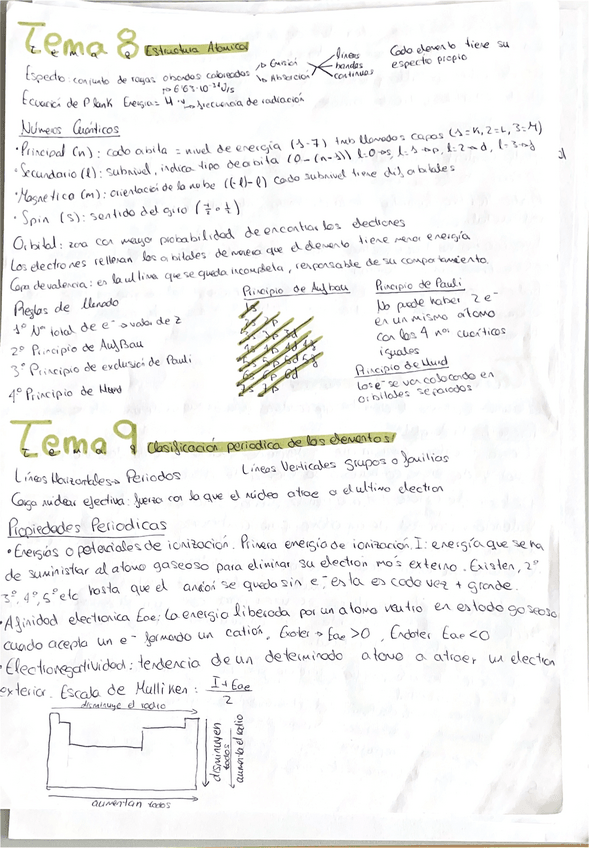 Tema 8 Estructura Atomica
Espectro conjunto de rayas o bandas coloreadas → Emisión → Absorción líneas bandas continuos
Cada elemento tiene su espectro propio
→ 6'63·10⁻³⁴ J/s
Ecuación de Plank Energia = h·ν → frecuencia de radiación
Números Cuánticos
• Principal (n): cada orbita = nivel de energía (1-7) tmb llamados capas (1=K, 2=L, 3=M)
• Secundario (l): subnivel, indica tipo de orbita (0-(n-1)) l=0→s, l=1→p, l=2→d, l=3→f
• Magnetico (m): orientación de la nube ((-l)-l) Cada subnivel tiene orbitales
• Spin (s): sentido del giro
Orbital: zona con mayor probabilidad de encontrar los electrones
Los electrones rellenan los orbitales de manera que el elemento tiene menor energía
Capa de valencia: es la ultima que se queda incompleta, responsable de su comportamiento.
Reglas de llenado
1º Nº total de e⁻ → valor de z
2º Principio de Aufbau
3º Principio de exclusió de Pauli
4º Principio de Hund
Principio de Aufbau
1s
Principio de Pauli
No puede haber 2 e⁻
en un mismo atomo
con los 4 nos cuánticos
iguales
Principio de Hund
Los e⁻ se van colocando en
orbitales separados
Tema 9 Clasificación periodica de los elementos
Líneas Horizontales → Periodos
Líneas Verticales grupos o familias
Carga nuclear efectiva: fuerza con la que el núcleo atrae a el ultimo electron
Propiedades Periodicas
• Energías o potenciales de ionización. Primera energía de ionización, I: energía que se ha
de suministrar al atomo gaseoso para eliminar su electron más externo. Existen, 2º
3º, 4º, 5º etc hasta que el se queda sin e⁻, esta es cada vez + grande.
• Afinidad electronica Eae: La energía liberada por un atomo neutro en estado gaseoso
cuando acepta un e⁻ formando un catión. Exoter → Eae >0, Endoter Eae <0
• Electronegatividad: tendencia de un determinado atomo a atraer un electron
exterior. Escala de Mulliken: I + Eae / 2
disminuye el radio
disminuyen todos
aumenta el radio
aumentan todos